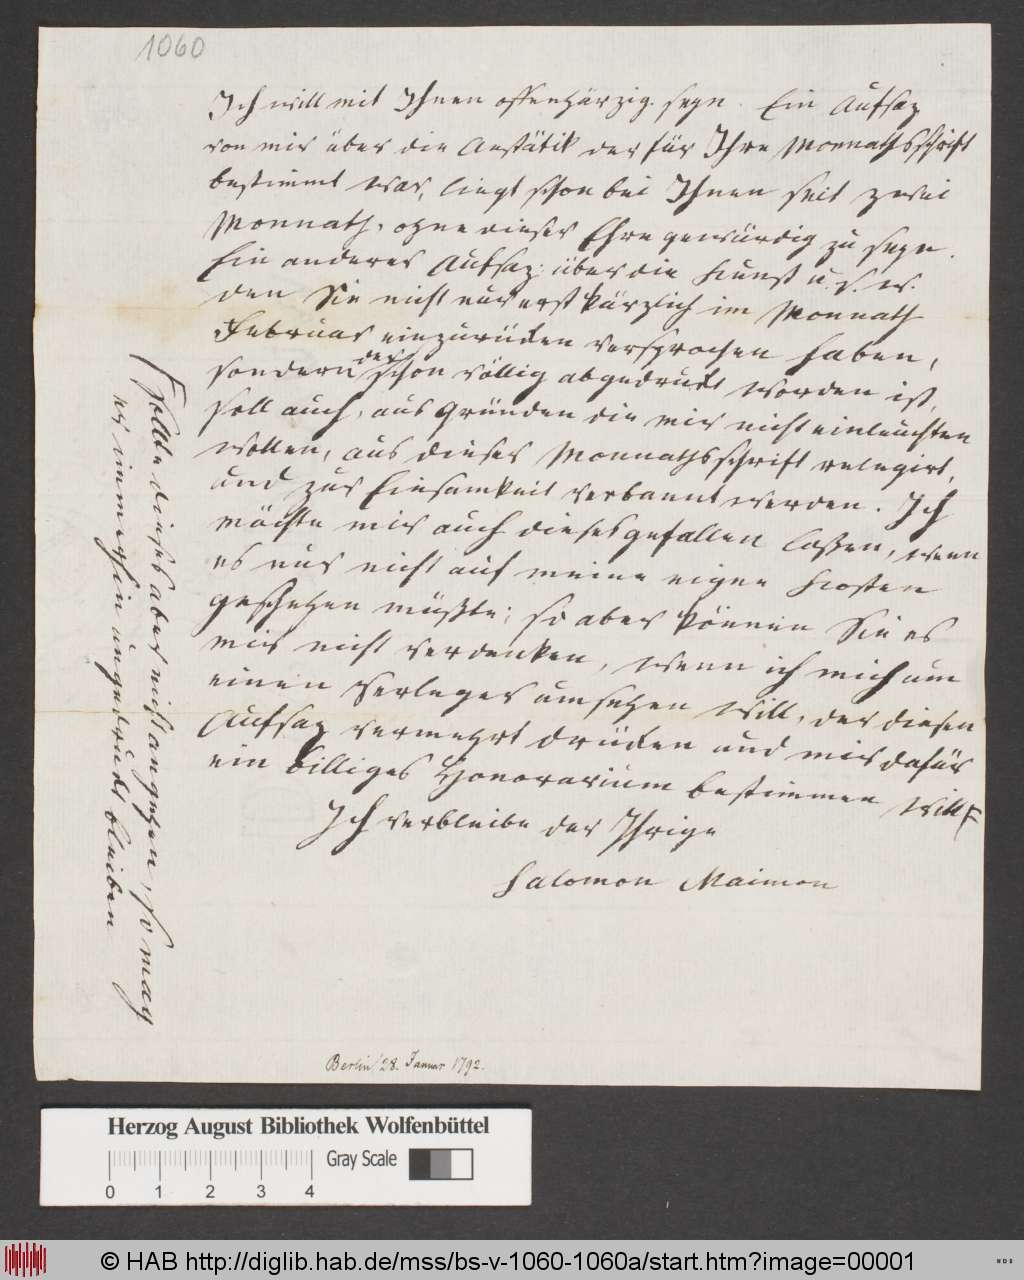 1060
Ich will mit Ihnen offenhärzig seyn. Ein Aufsaz
von mir über die Aestätik der für Ihre Monnathsschrift
bestimmt war, liegt schon bei Ihnen seit zwei
Monnath, ohne dieser Ehre gewürdig zu seyn.
Ein anderer Aufsaz: über die Kunst u. s. w.
den Sie nicht nur erst kürzlich im Monnath
Februar einzurücken versprochen haben,
sondern der schon völlig abgedruckt worden ist,
soll auch, aus Gründen die mir nicht einleuchten
wollen, aus dieser Monnathsschrift relegirt,
und zur Einsamkeit verbannt werden. Ich
möchte mir auch dieses gefallen laßen, wenn
es nur nicht auf meine eigne Kosten
geschehen müßte; so aber können Sie es
mir nicht verdenken, wenn ich mich um
einen Verleger umsehen will, der diesen
Aufsaz vermehrt drücken und mir dafür
ein billiges Honorarium bestimmen will F
Ich verbleibe der Ihrige
Salomon Maimon
F sollte dieses aber nicht angehen, so mag
er immerhin ungedruckt bleiben
Berlin 28. Januar 1792.
Herzog August Bibliothek Wolfenbüttel
Gray Scale
0 1 2 3 4
© HAB http://diglib.hab.de/mss/bs-v-1060-1060a/start.htm?image=00001